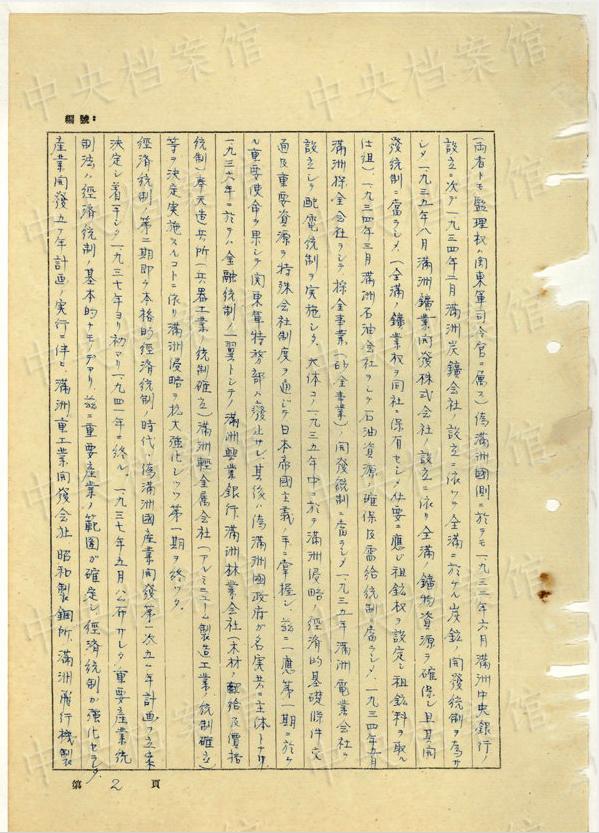 編號:
(両者トモ監理权ハ関東軍司令官ニ属ス) 偽満洲國側ニ於テモ一九三二年六月満洲中央銀行ノ
設立ニ次テ一九三四年二月満洲炭鑛会社ノ設立ニ依ツテ全満ニ於ケル炭鉱ノ開發統制ヲ為サ
シメ一九三五年八月満洲鑛業開發株式会社ノ設立ニ依リ全満ノ鑛物資源ヲ確保シ且其開
發統制ニ當ラシメ(全満ノ鑛業权ヲ同社ニ保有セシメ仕要ニ應ジ租鉱权ヲ設定シ租鉱料ヲ取ル
仕組)一九三四年三月満洲石油会社ヲシテ石油資源ノ確保及需給統制ニ當ラシメ一九三四年五月
満洲採金会社ヲシテ採金事業(砂金事業)ノ開發統制ニ當ラシメ一九三五年満洲電業会社ヲ
設立シテ配電統制ヲ実施シタ。大体コノ一九三五年中ニ於テ満洲侵略ノ経済的基礎條件交
通及重要資源ヲ特殊会社制度ヲ通ジテ日本帝國主義ノ手ニ掌握シ茲ニ一應第一期ニ於ケ
ル重要使命ヲ果シテ関東軍特務部ハ發止サレ其後ハ偽満洲國政府が名実共ニ主体トナリ
一九三六年ニ於テハ金融統制ノ一翼トシテノ満洲興業銀行満洲林業会社(木材ノ配給及價格
統制)奉天造兵所(兵器工業ノ統制確立)満洲軽金属会社(アルミニューム製造工業ノ統制確立)
等ヲ決定実施スルコトニ依リ満洲侵略ヲ拡大強化シツツ第一期ヲ終ッタ。
経済統制ノ第二期即チ本格的経済統制ノ時代ハ偽満洲國産業開發第一次五ヶ年計画ヲ立案
決定シ着手シタ一九三七年ヨリ初マリ一九四一年ニ終ル。一九三七年五月公布サレタ重要産業統
制法ハ経済統制ノ基本的ナモノデアリ茲ニ重要産業ノ範囲が確定シ経済統制が強化セラレタ
産業開發五ヶ年計画ノ実行ニ伴ヒ満洲重工業開發会社昭和製鋼所満洲飛行機製
第 2 頁
中央档案馆